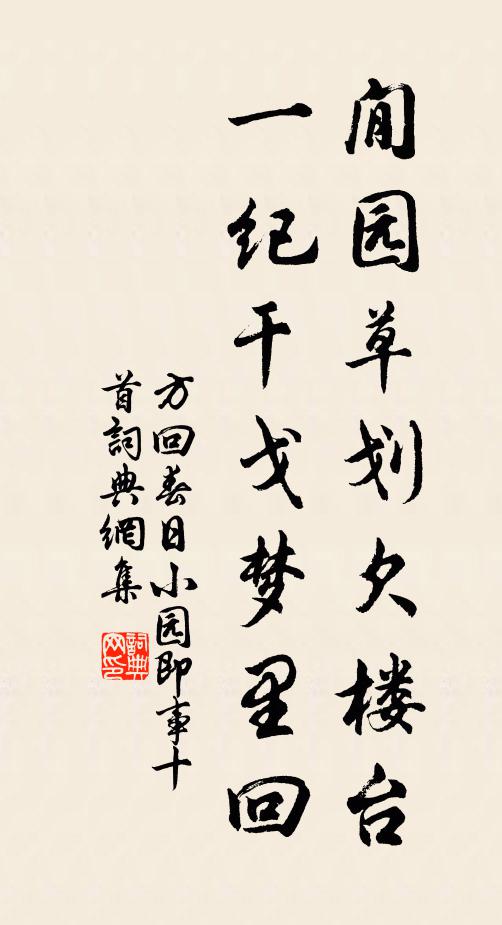 闲园草划欠楼台
一纪干戈梦里回
方回春日小园即事十
首词典網集
詞典
网印